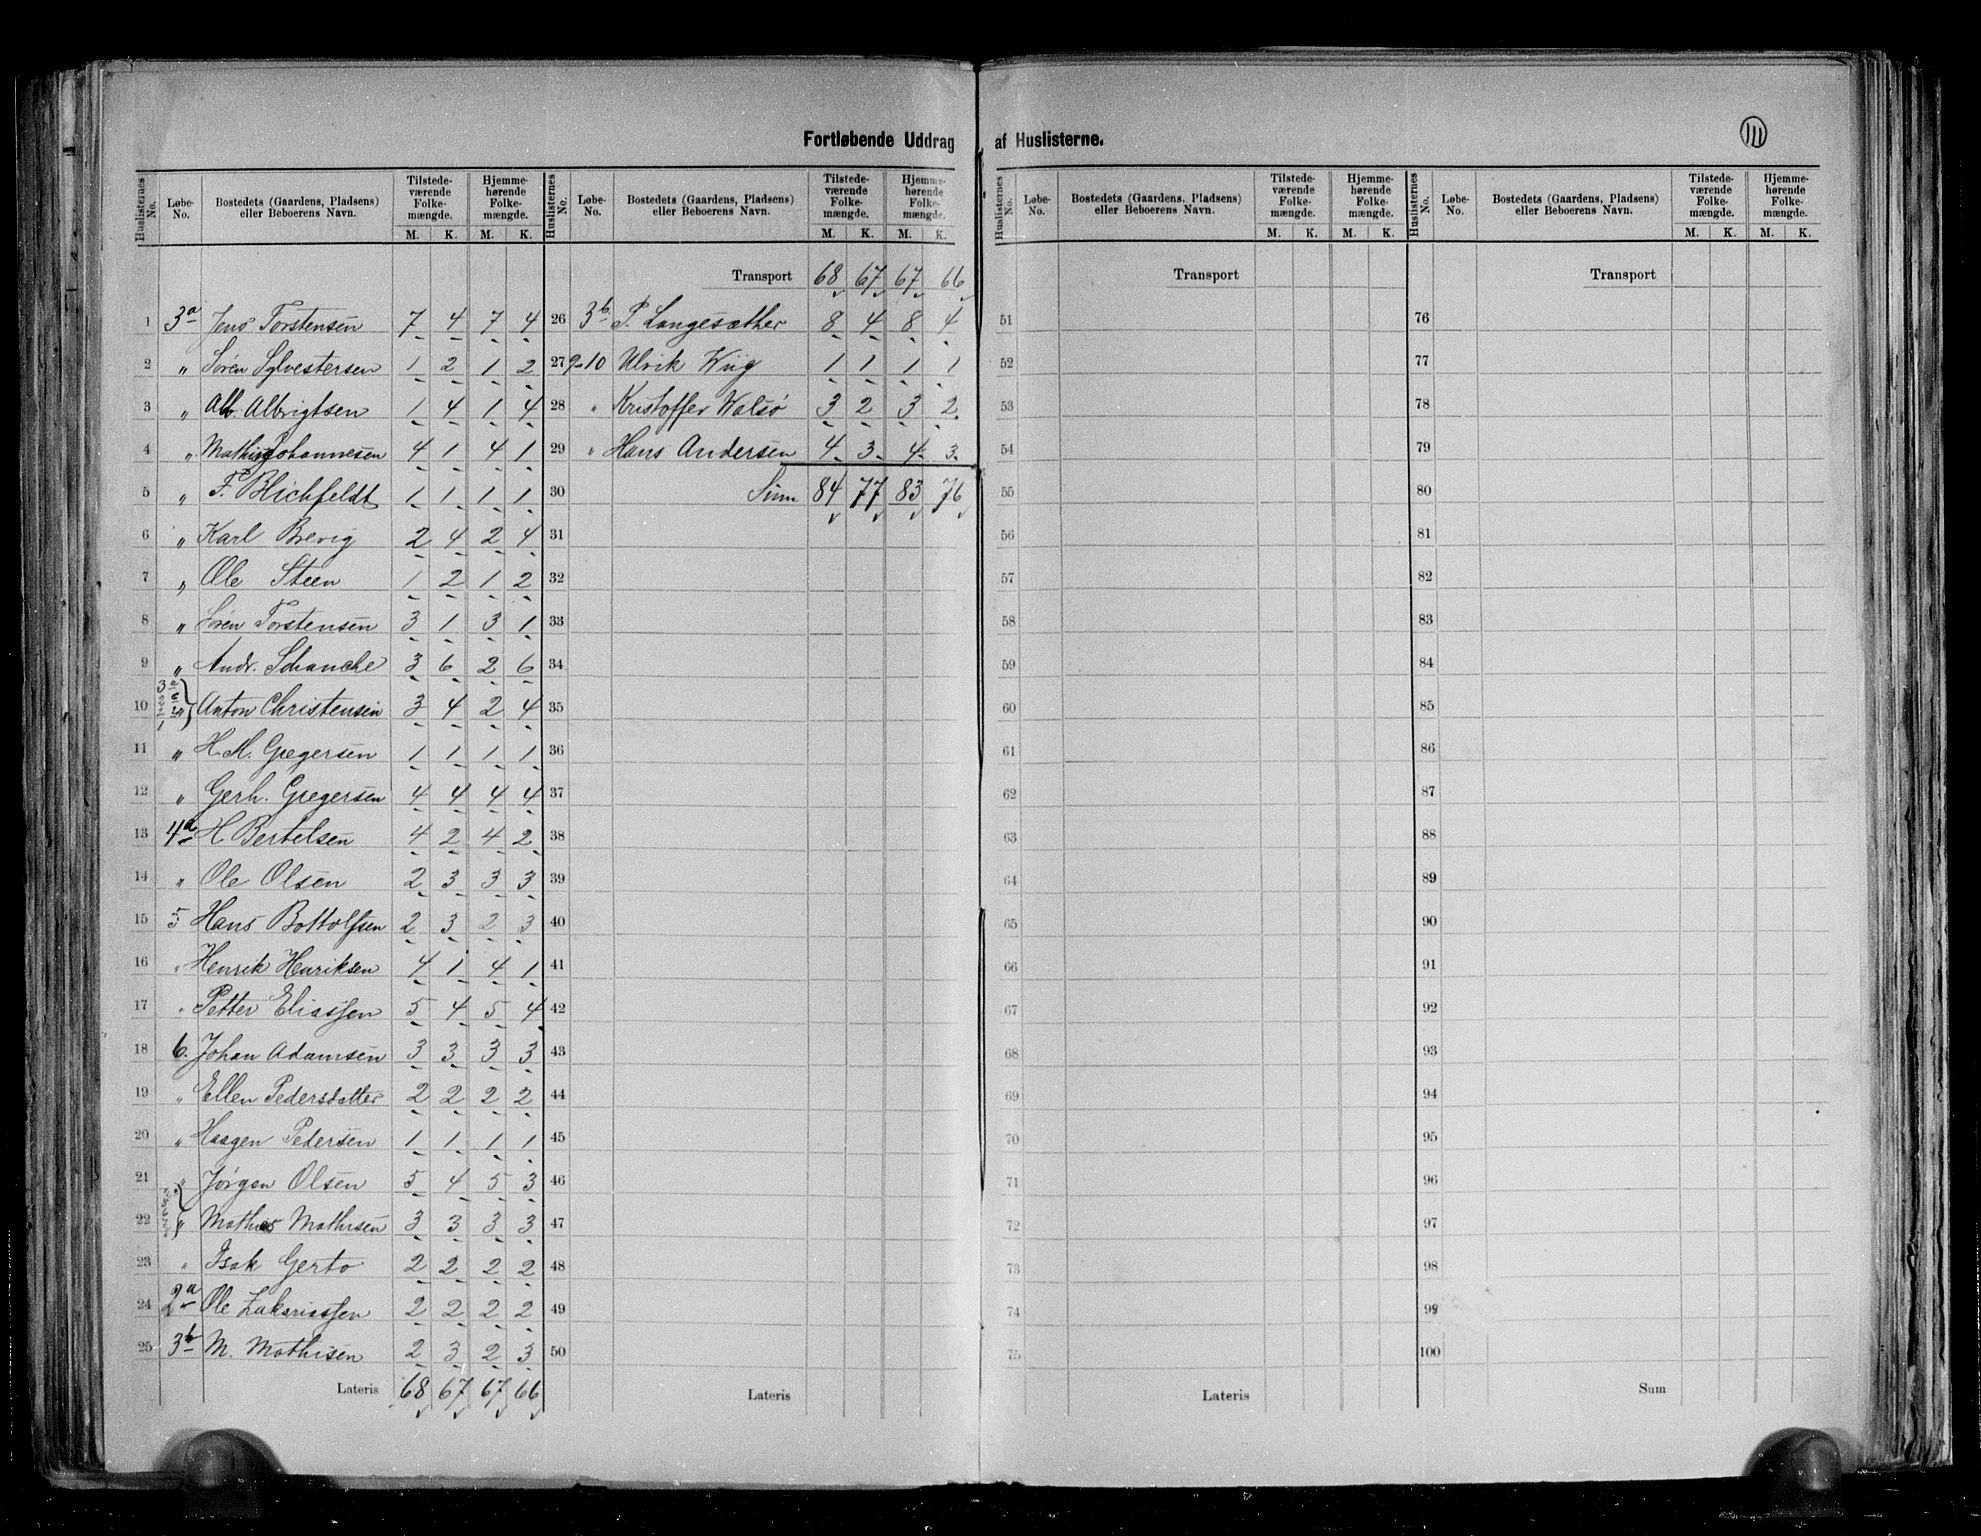 Fortløbende Uddrag af Huslisterne.
111
Huslisternes No. Løbe-No. Bostedets (Gaardens, Pladsens) eller Beboerens Navn. Tilstedeværende Folkemængde. M. K. Hjemmehørende Folkemængde. M. K.
1 3a Jens Torstensen 7 4 7 4
2 " Søren Sylvestersen 1 2 1 2
3 " Alb. Albrigtsen 1 4 1 4
4 " Mathis Johannesen 4 1 4 1
5 " F. Blichfeldt 1 1 1 1
6 " Karl Brevig 2 4 2 4
7 " Ole Steen 1 2 1 2
8 " Søren Torstensen 3 1 3 1
9 " Andr. Schanche 3 6 2 6
10 Anton Christensen 3 4 2 4
11 " H. M. Gregersen 1 1 1 1
12 " Gerh. Gregersen 4 4 4 4
13 4a H Bertelsen 4 2 4 2
14 " Ole Olsen 2 3 3 3
15 5 Hans Bottolfsen 2 3 2 3
16 " Henrik Henriksen 4 1 4 1
17 " Petter Eliassen 5 4 5 4
18 6. Johan Adamsen 3 3 3 3
19 " Ellen Pedersdatter 2 2 2 2
20 " Haagen Pedersen 1 1 1 1
21 " Jørgen Olsen 5 4 5 3
22 " Mathis Mathisen 3 3 3 3
23 " Isak Gerto 2 2 2 2
24 2a Ole Zakariassen 2 2 2 2
25 3b M. Mathisen 2 3 2 3
Lateris 68 67 67 66
Huslisternes No. Løbe-No. Bostedets (Gaardens, Pladsens) eller Beboerens Navn. Tilstedeværende Folkemængde. M. K. Hjemmehørende Folkemængde. M. K.
Transport 68 67 67 66
26 3b P. Langesæther 8 4 8 4
27 9-10 Ulrik Wiig 1 1 1 1
28 " Kristoffer Walsø 3 2 3 2
29 " Hans Andersen 4 3 4 3
30 Sum 84 77 83 76
31
32
33
34
35
36
37
38
39
40
41
42
43
44
45
46
47
48
49
50
Lateris
Huslisternes No. Løbe-No. Bostedets (Gaardens, Pladsens) eller Beboerens Navn. Tilstedeværende Folkemængde. M. K. Hjemmehørende Folkemængde. M. K.
Transport
51
52
53
54
55
56
57
58
59
60
61
62
63
64
65
66
67
68
69
70
71
72
73
74
75
Lateris
Huslisternes No. Løbe-No. Bostedets (Gaardens, Pladsens) eller Beboerens Navn. Tilstedeværende Folkemængde. M. K. Hjemmehørende Folkemængde. M. K.
Transport
76
77
78
79
80
81
82
83
84
85
86
87
88
89
90
91
92
93
94
95
96
97
98
99
100
Sum